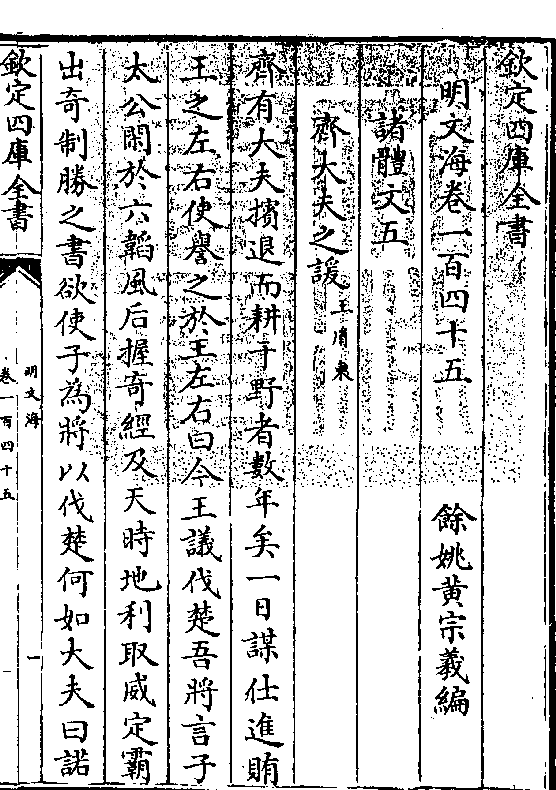 欽定四庫全書
明文海卷一百四十五
餘姚黃宗羲編
諸體文五
齊大夫之諼王廉東
齊有大夫擯退而耕于野者數年矣一日謀仕進賄
王之左右使譽之於王左右曰今王議伐楚吾將言子
太公閑於六韜風后握奇經及天時地利取威定霸
出奇制勝之書欲使子為將以伐楚何如大夫曰諾
欽定四庫全書
明文海
卷一百四十五
一